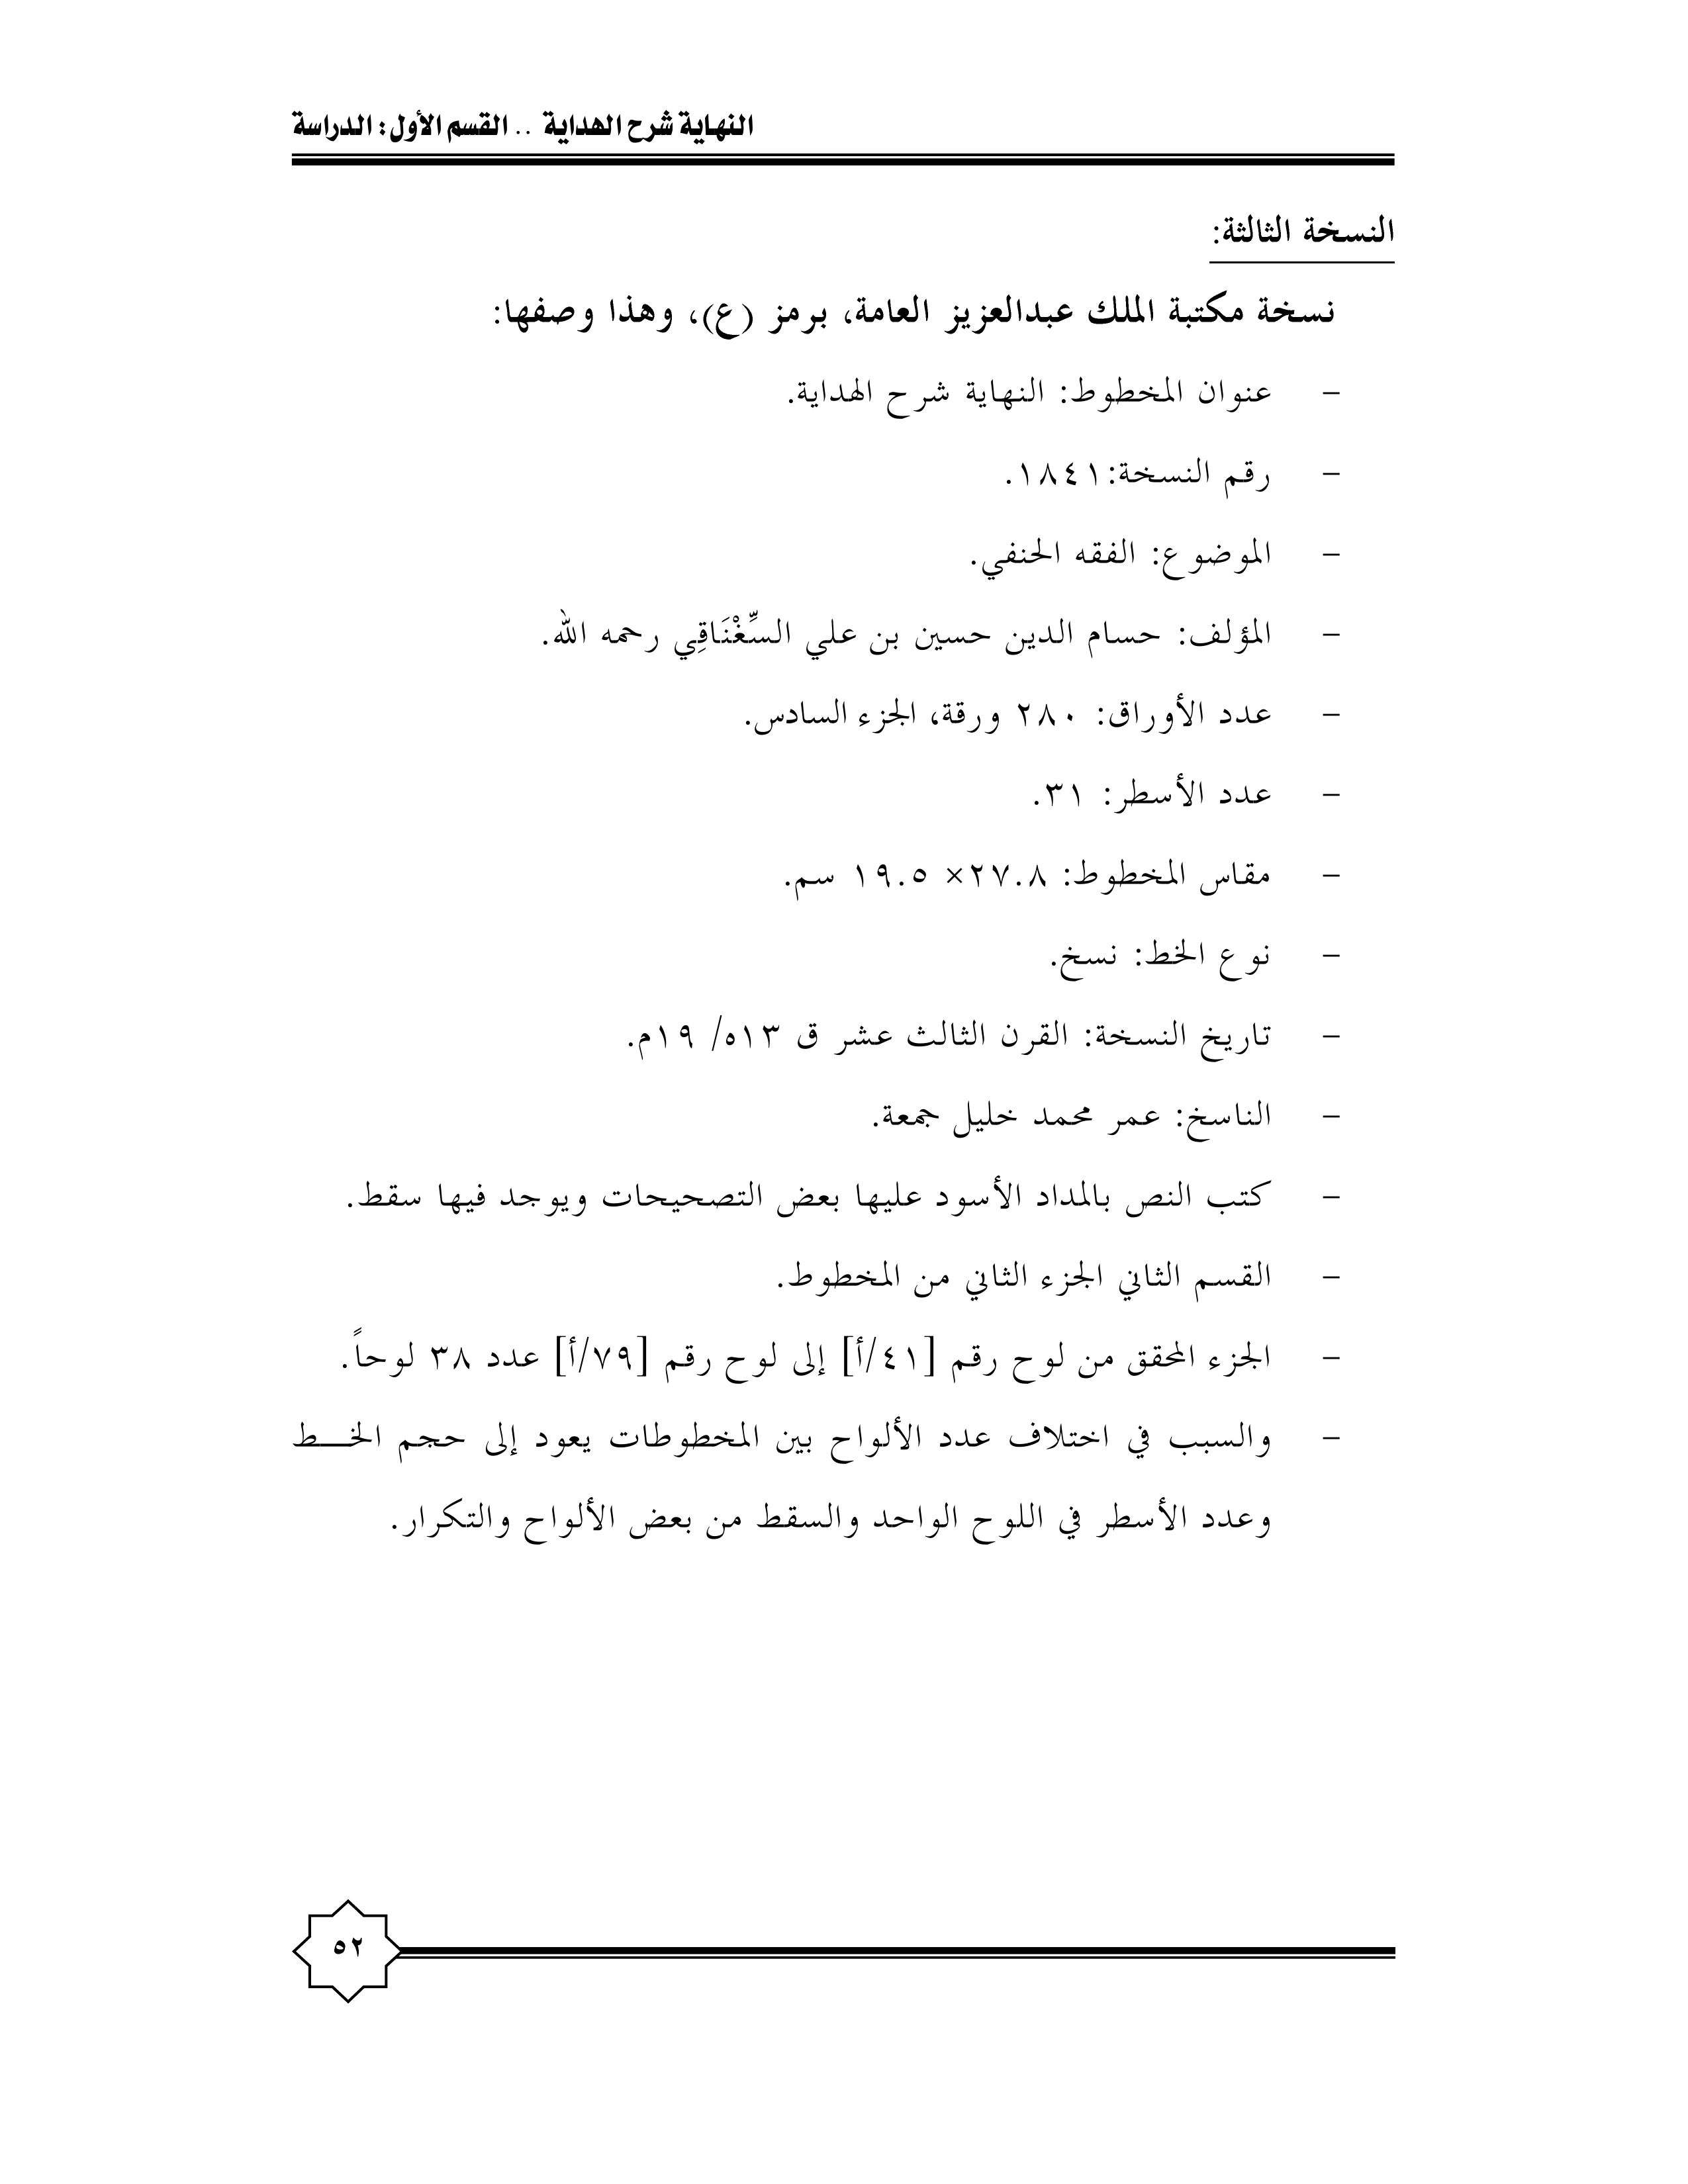 النهاية شرح الهداية .. القسم الأول: الدراسة
النسخة الثالثة:
نسخة مكتبة الملك عبدالعزيز العامة، برمز (ع)، وهذا وصفها:
- عنوان المخطوط: النهاية شرح الهداية.
- رقم النسخة:١٨٤١.
- الموضوع: الفقه الحنفي.
- المؤلف: حسام الدين حسين بن علي السِّغْنَاقِي رحمه الله.
- عدد الأوراق: ٢٨٠ ورقة، الجزء السادس.
- عدد الأسطر: ٣١.
- مقاس المخطوط: ٢٧.٨× ١٩.٥ سم.
- نوع الخط: نسخ.
- تاريخ النسخة: القرن الثالث عشر ق ١٣ه/ ١٩م.
- الناسخ: عمر محمد خليل جمعة.
- كتب النص بالمداد الأسود عليها بعض التصحيحات ويوجد فيها سقط.
- القسم الثاني الجزء الثاني من المخطوط.
- الجزء المحقق من لوح رقم [٤١/أ] إلى لوح رقم [٧٩/أ] عدد ٣٨ لوحاً.
- والسبب في اختلاف عدد الألواح بين المخطوطات يعود إلى حجم الخـــط
وعدد الأسطر في اللوح الواحد والسقط من بعض الألواح والتكرار.
٥٢